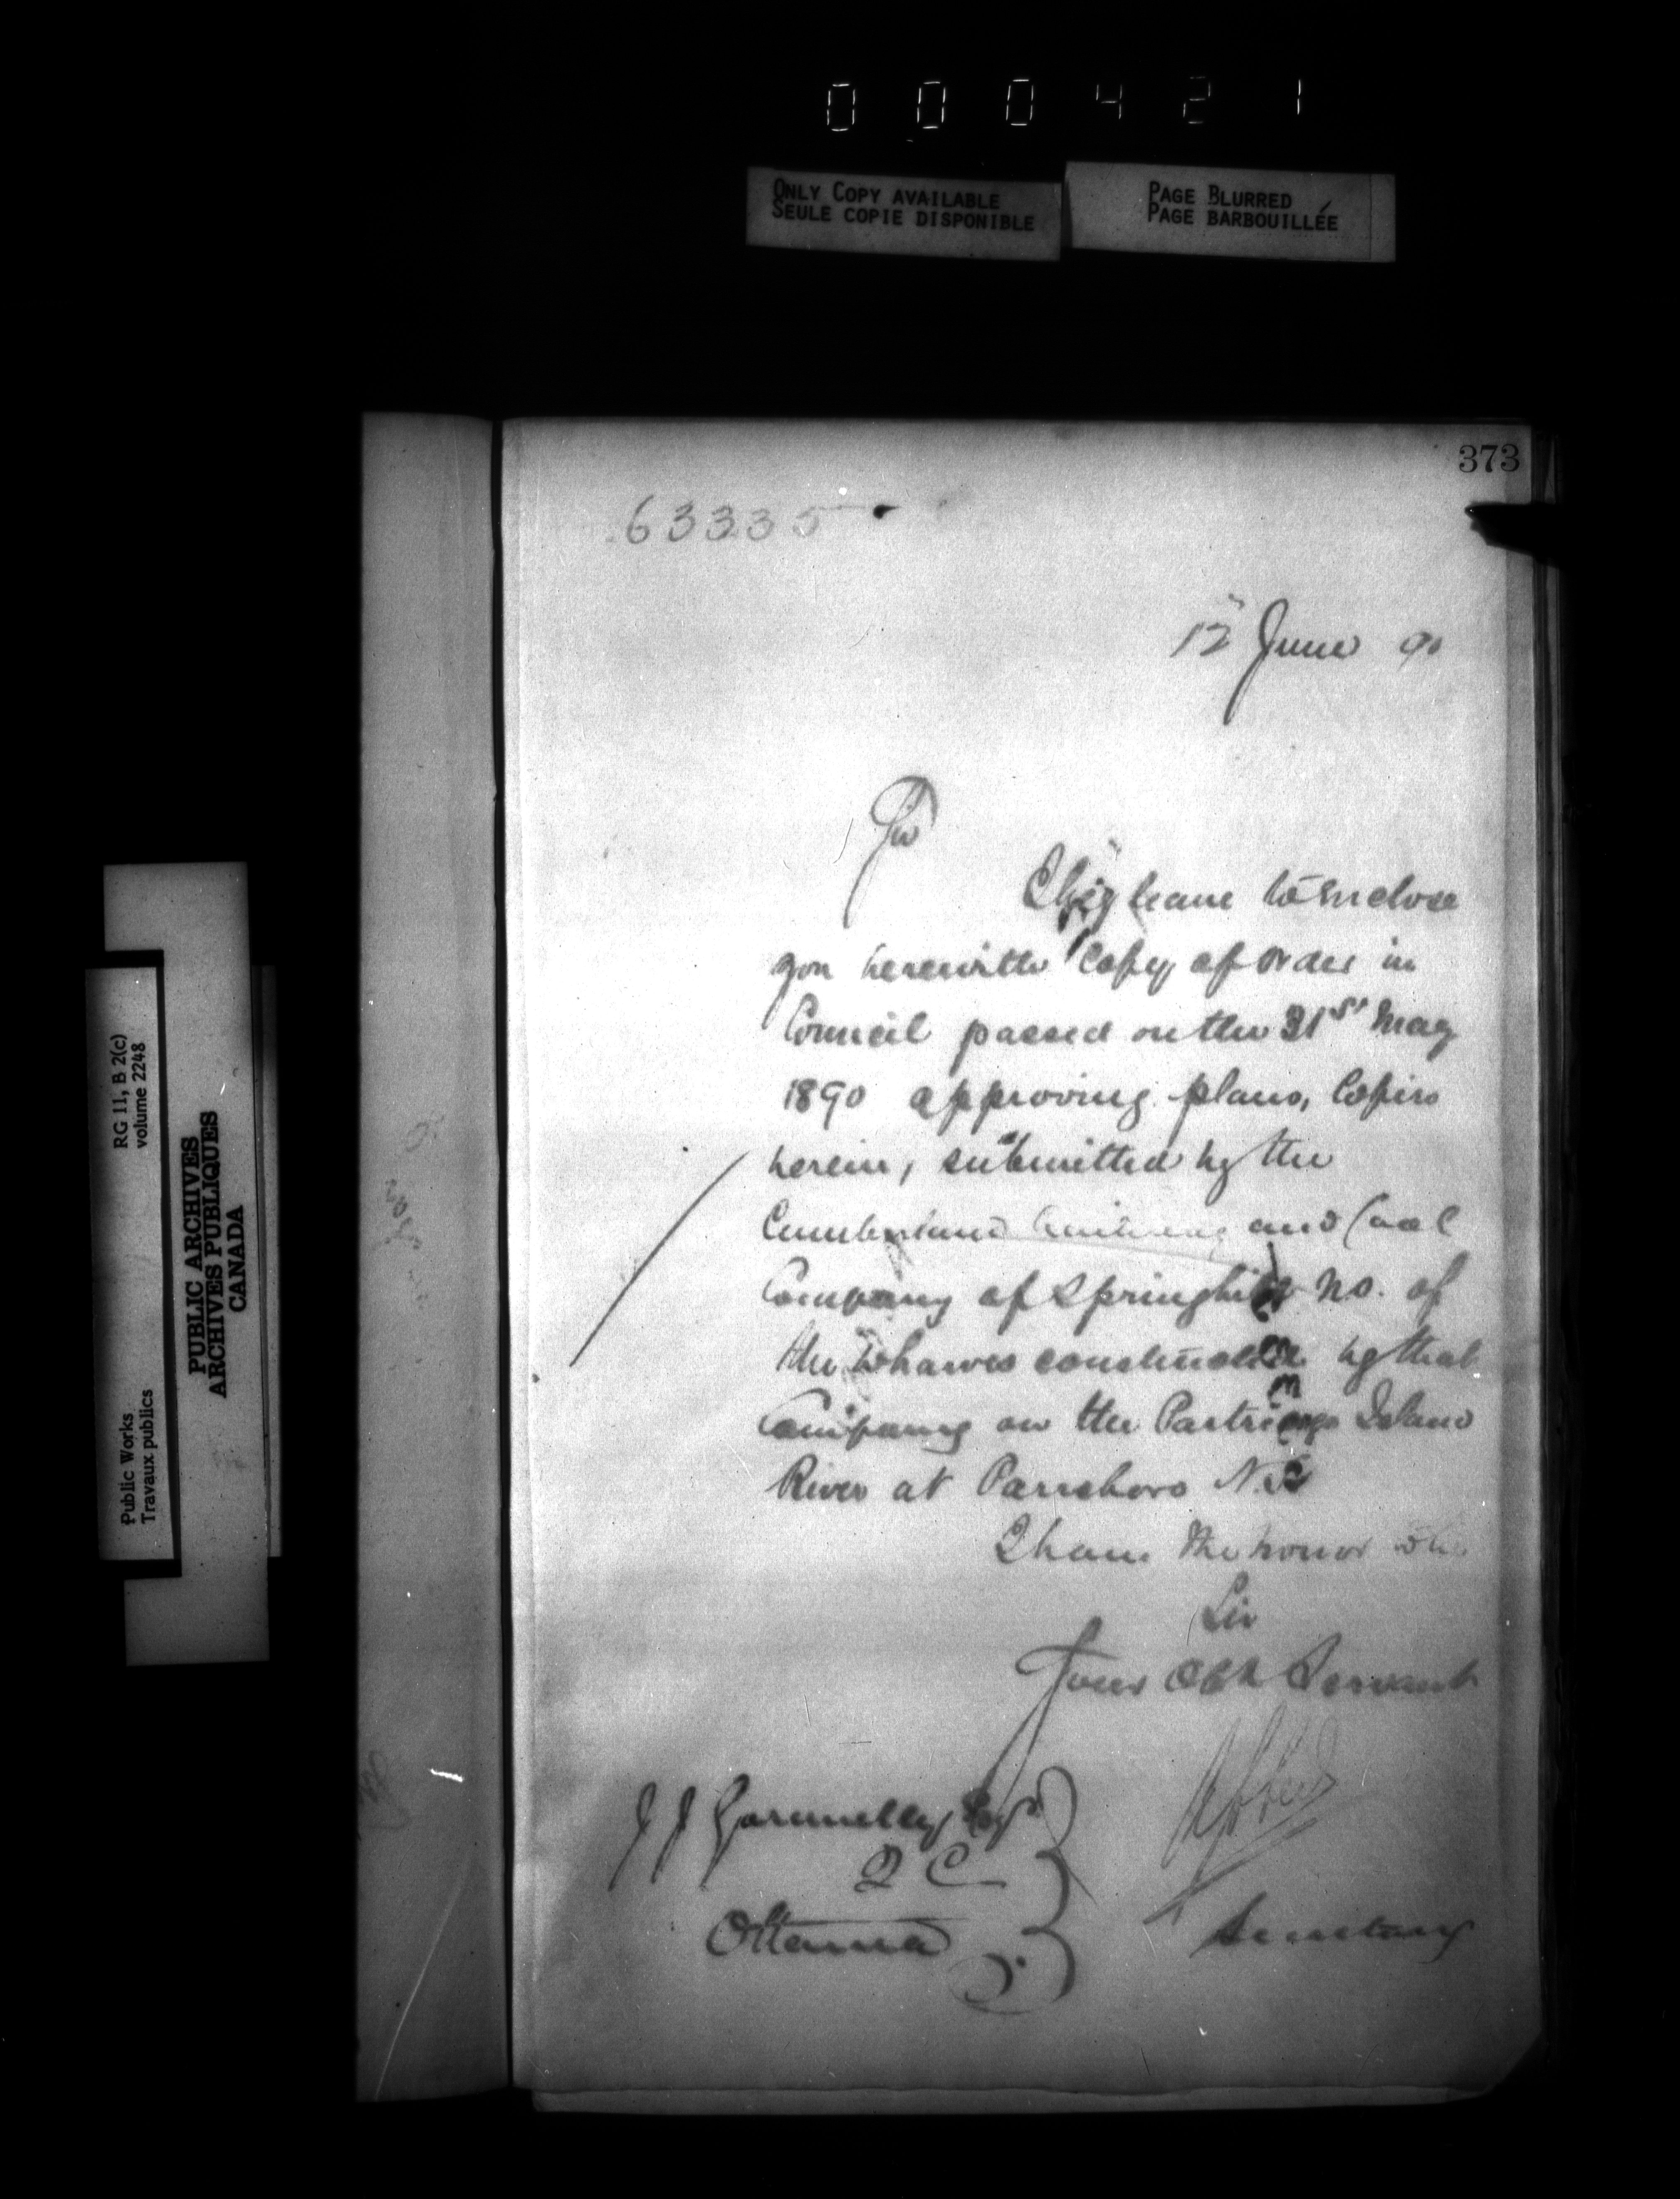 000421
ONLY COPY AVAILABLE
SEULE COPIE DISPONIBLE
PAGE BLURRED
PAGE BARBOUILLÉE
373
63335
12th June 90
Sir
I beg leave to enclose
you herewith Copy of Order in
Council passed on the 31st May
1890 approving plans, Copies
herein, submitted by the
Cumberland Railway and Coal
Company of Springhill N.S. of
the Wharves constructed by that
Company on the Partridge Island
River at Parrsboro N.S
I have the honor to be
Sir
Your Obt Servant
J J Esqr
Q C
Ottawa
Secretary
RG 11, B 2(c)
volume 2248
Public Works
Travaux publics
PUBLIC ARCHIVES
ARCHIVES PUBLIQUES
CANADA